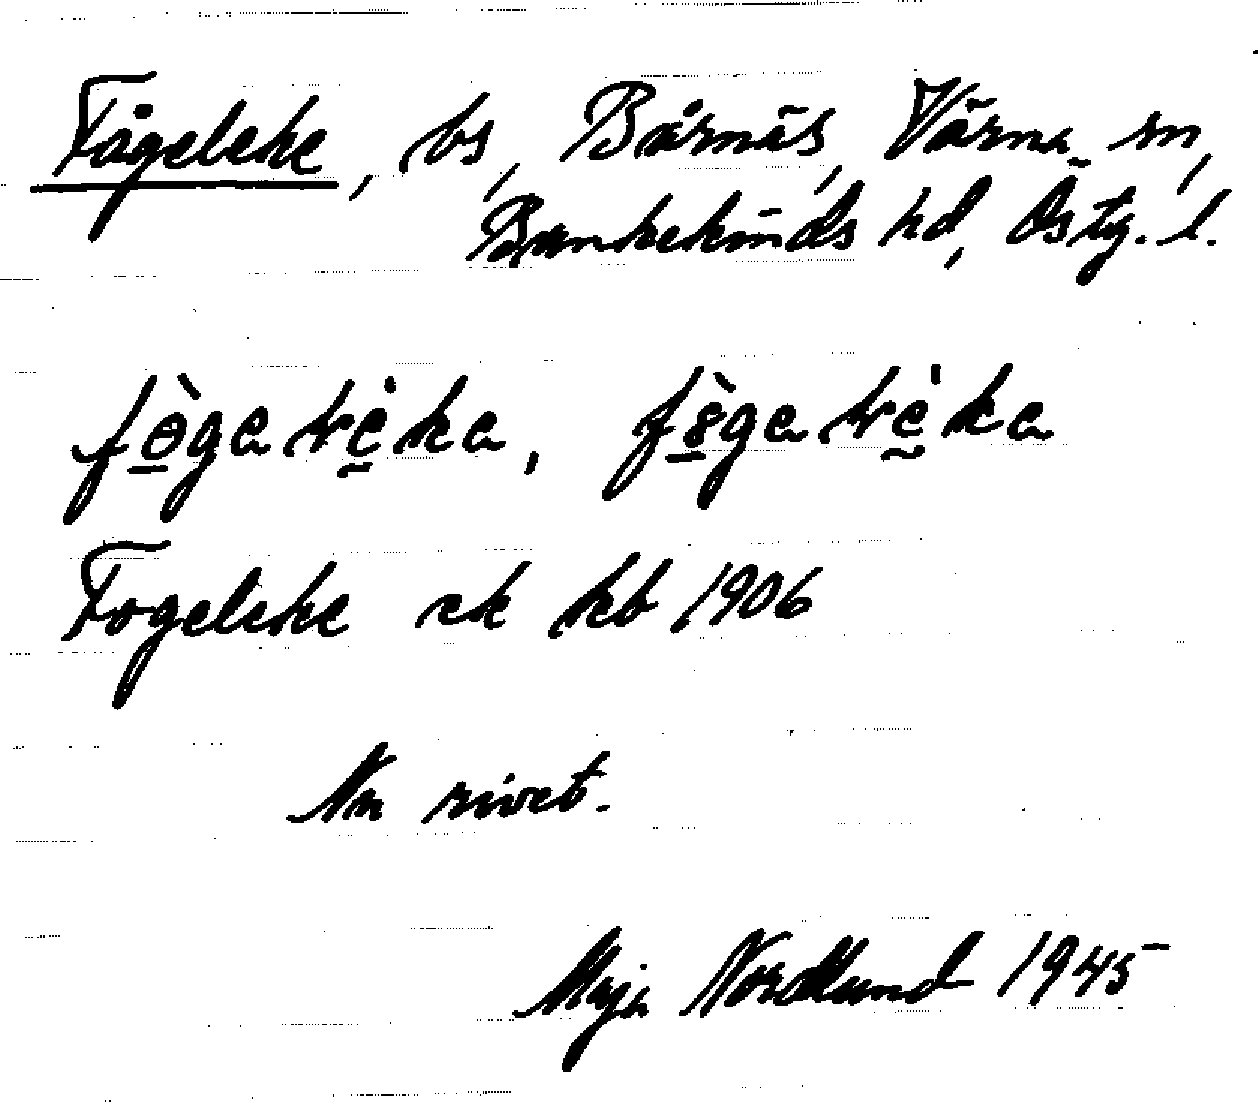 Fågeleke, bs, Bärnäs, Värna sn,
Bankekinds hd, Östg. l.
Fogeleke ek kb 1906
Nu rivet.
Maja Nordlund 1945